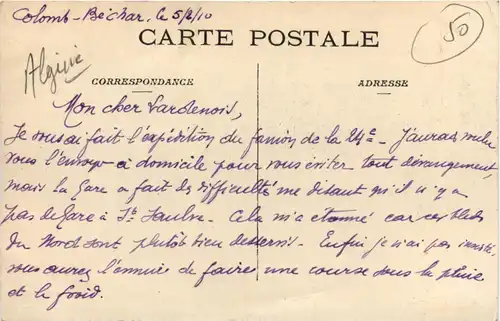 Colomb-Béchar, le 5/2/10
50
CARTE POSTALE
Algérie
CORRESPONDANCE
ADRESSE
Mon cher Lardenois,
Je vous ai fait l'expédition du fanion de la 24e - J'aurais voulu
vous l'envoyer à domicile pour vous éviter tout dérangement,
mais la Gare a fait des difficultés me disant qu'il n'y a
pas de Gare à St Saulve. Cela m'a étonné car ces bleds
du Nord sont plutôt bien desservis. Enfin je n'ai pas insisté,
vous aurez l'ennui de faire une course sous la pluie
et le froid.